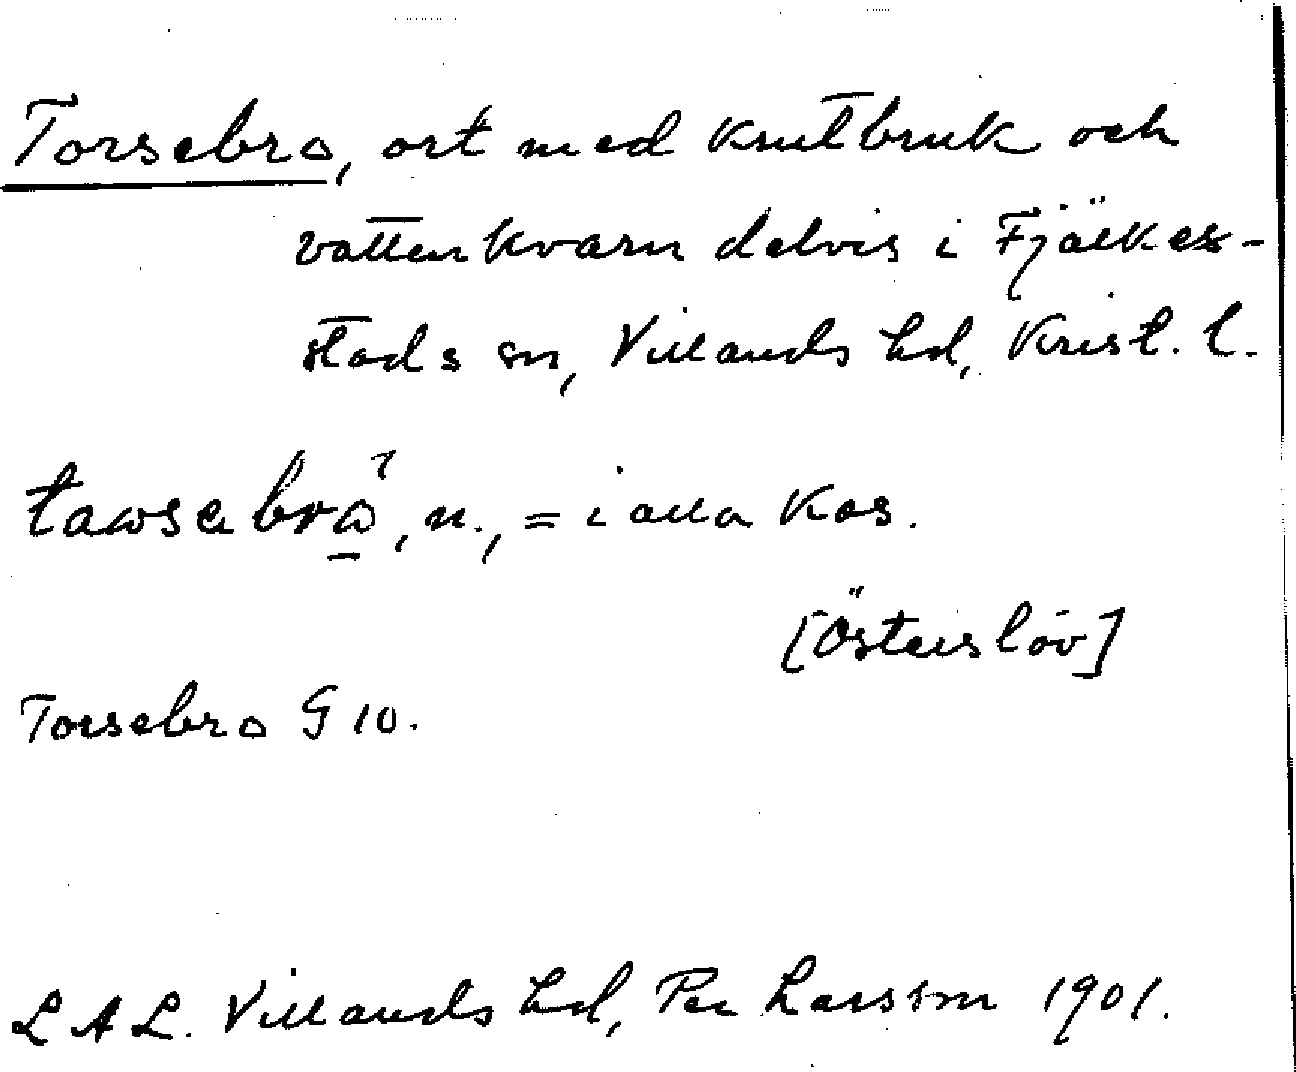 Torsebro, ort med krutbruk och
vattenkvarn delvis i Fjälkes-
stads sn, Villands hd, Krist. l.
n., = i alla kas.
[Österslöv]
Torsebro G 10.
LAL. Villands hd, Per Larsson 1901.